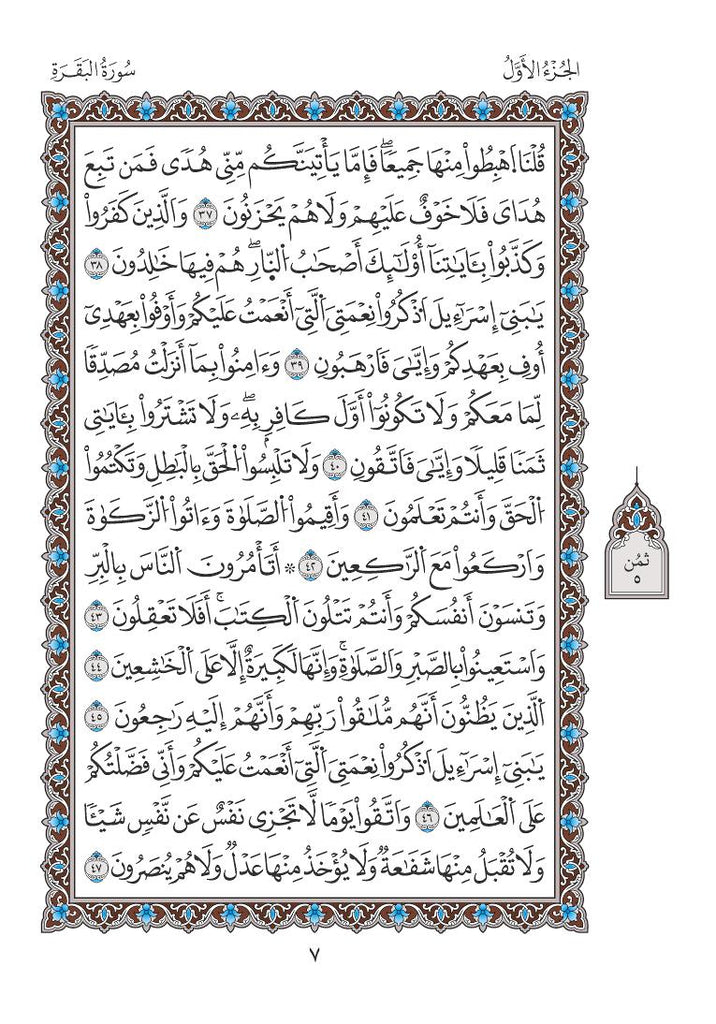 الجُزْءُ الأَوَّلُ
سُورَةُ البَقَرَةِ
قُلْنَا اَهْبِطُواْ مِنْهَا جَمِيعاٗۖ فَإِمَّا يَأْتِيَنَّكُم مِّنِّے هُدٗى فَمَن تَبِعَ
هُدَايَ فَلَا خَوْفٌ عَلَيْهِمْ وَلَا هُمْ يَحْزَنُونَ ٣٧ وَالَّذِينَ كَفَرُواْ
وَكَذَّبُواْ بِـَٔايَٰتِنَآ أُوْلَٰٓئِكَ أَصْحَٰبُ اُ۬لنَّارِۖ هُمْ فِيهَا خَٰلِدُونَ ٣٨
يَٰبَنِےٓ إِسْرَآءِيلَ اَ۟ذْكُرُواْ نِعْمَتِيَ اَ۬لَّتِےٓ أَنْعَمْتُ عَلَيْكُمْ وَأَوْفُواْ بِعَهْدِےٓ
أُوفِ بِعَهْدِكُمْ وَإِيَّٰيَ فَارْهَبُونِ ٣٩ وَءَامِنُواْ بِمَآ أَنزَلْتُ مُصَدِّقاٗ
لِّمَا مَعَكُمْ وَلَا تَكُونُوٓاْ أَوَّلَ كَافِرِۢ بِهِۦۖ وَلَا تَشْتَرُواْ بِـَٔايَٰتِے
ثَمَناٗ قَلِيلاٗ وَإِيَّٰيَ فَاتَّقُونِ ٤٠ وَلَا تَلْبِسُواْ اُ۬لْحَقَّ بِالْبَٰطِلِ وَتَكْتُمُواْ
اُ۬لْحَقَّ وَأَنتُمْ تَعْلَمُونَ ٤١ وَأَقِيمُواْ اُ۬لصَّلَوٰةَ وَءَاتُواْ اُ۬لزَّكَوٰةَ
وَارْكَعُواْ مَعَ اَ۬لرَّٰكِعِينَ ٤٢ ۞ أَتَأْمُرُونَ اَ۬لنَّاسَ بِالْبِرِّ
وَتَنسَوْنَ أَنفُسَكُمْ وَأَنتُمْ تَتْلُونَ اَ۬لْكِتَٰبَۚ أَفَلَا تَعْقِلُونَ ٤٣
وَاسْتَعِينُواْ بِالصَّبْرِ وَالصَّلَوٰةِۚ وَإِنَّهَا لَكَبِيرَةٌ إِلَّا عَلَى اَ۬لْخَٰشِعِينَ ٤٤
اَ۬لَّذِينَ يَظُنُّونَ أَنَّهُم مُّلَٰقُواْ رَبِّهِمْ وَأَنَّهُمْ إِلَيْهِ رَٰجِعُونَ ٤٥
يَٰبَنِےٓ إِسْرَآءِيلَ اَ۟ذْكُرُواْ نِعْمَتِيَ اَ۬لَّتِےٓ أَنْعَمْتُ عَلَيْكُمْ وَأَنِّے فَضَّلْتُكُمْ
عَلَى اَ۬لْعَٰلَمِينَ ٤٦ وَاتَّقُواْ يَوْماٗ لَّا تَجْزِے نَفْسٌ عَن نَّفْسٖ شَيْـٔاٗ
وَلَا تُقْبَلُ مِنْهَا شَفَٰعَةٞ وَلَا يُؤْخَذُ مِنْهَا عَدْلٞ وَلَا هُمْ يُنصَرُونَ ٤٧
ثُمُن
٥
٧